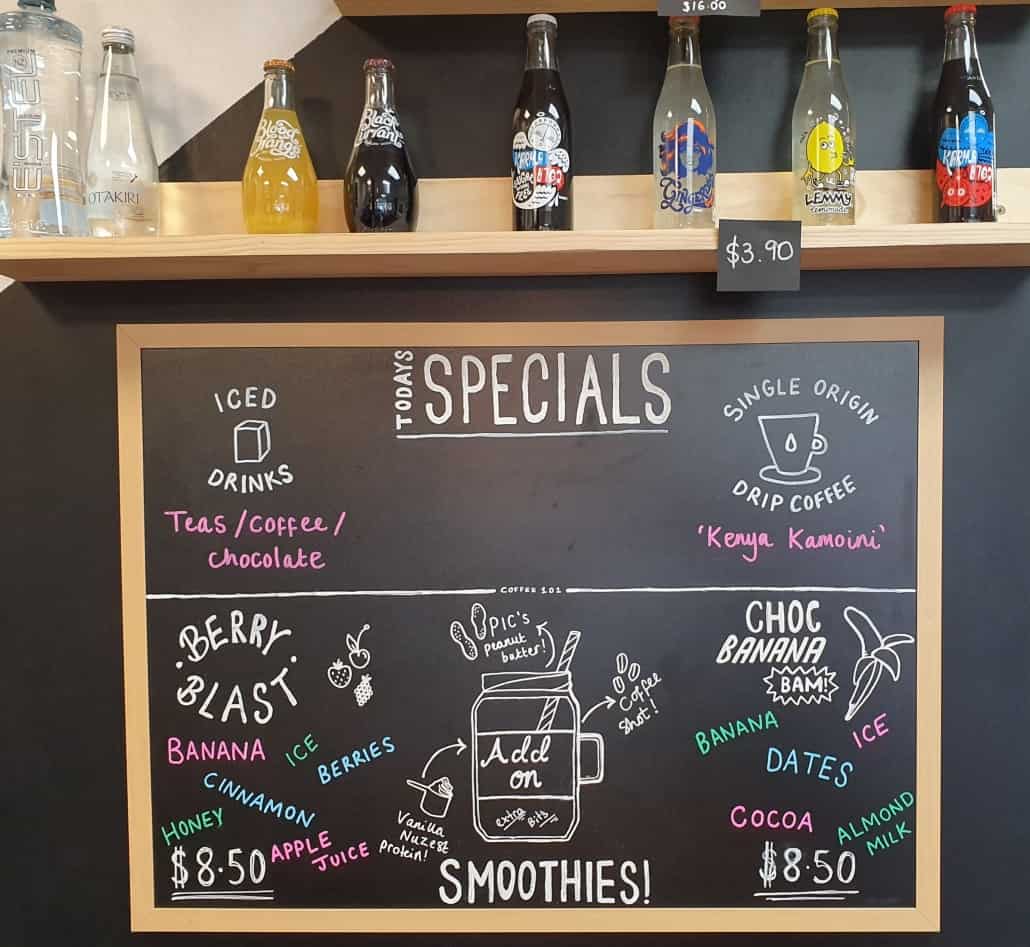 $16.00
PREMIUM
NZ
ESTEL
OTAKIRI
Blood
Orange
Black
Currant
KARMA
COLA
SUGAR
FREE
Gingerella
LEMMY
lemonade
KARMA
COLA
$3.90
TODAYS
SPECIALS
ICED
DRINKS
Teas/Coffee/
Chocolate
SINGLE ORIGIN
DRIP COFFEE
'Kenya Kamoini'
COFFEE 101
BERRY
BLAST
BANANA
ICE
BERRIES
CINNAMON
HONEY
APPLE
JUICE
$8.50
PIC's
Peanut
butter!
Coffee
Shot!
Add
on
extra
Bits
Vanilla
Nuzest
Protein!
SMOOTHIES!
CHOC
BANANA
BAM!
BANANA
ICE
DATES
COCOA
ALMOND
MILK
$8.50